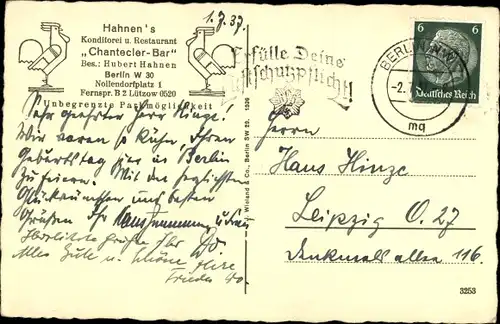 Hahnen's
Konditorei u. Restaurant
„Chantecler-Bar"
Bes.: Hubert Hahnen
Berlin W 30
Nollendorfplatz 1
Fernspr. B 2 Lützow 0520
Unbegrenzte Parkmöglichkeit
1.7.37
Erfülle Deine
Luftschutzpflicht!
BERLIN NW
-2.
mq
6 6
Deutsches Reich
Sehr geehrter Herr Hinze!
Wir waren so kühn, Ihren
Geburtstag hier in Berlin
zu feiern. Mit den herzlichsten
Glückwünschen und besten
Grüßen Ihr
Herzliche Grüße Ihr
Alles Gute u. schöne
Herrn
Hans Hinze
Leipzig O. 27
Denkmalsallee 116.
Wieland & Co., Berlin SW 29. 1936
3253